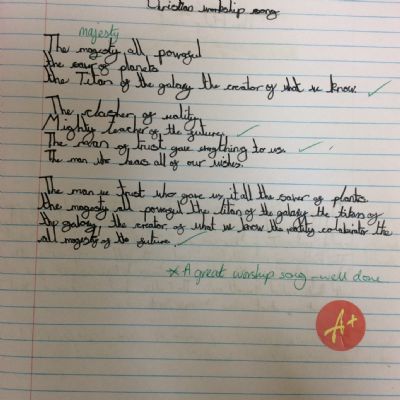 Christian worship song
majesty
The magesty all powerful
the savor of planets
the Titan of the galaxy the creator of what we know.
The of reality
Mighty teacher of the future
The of trust gave everything to us.
The man who hears all of our wishes.
The man we trust who gave us it all the saver of plants
the magesty all powerful the titan of the galaxy the titans of
the galaxy, the creator of what we know the reality the
all magesty of the future.
* A great worship song - well done
A+